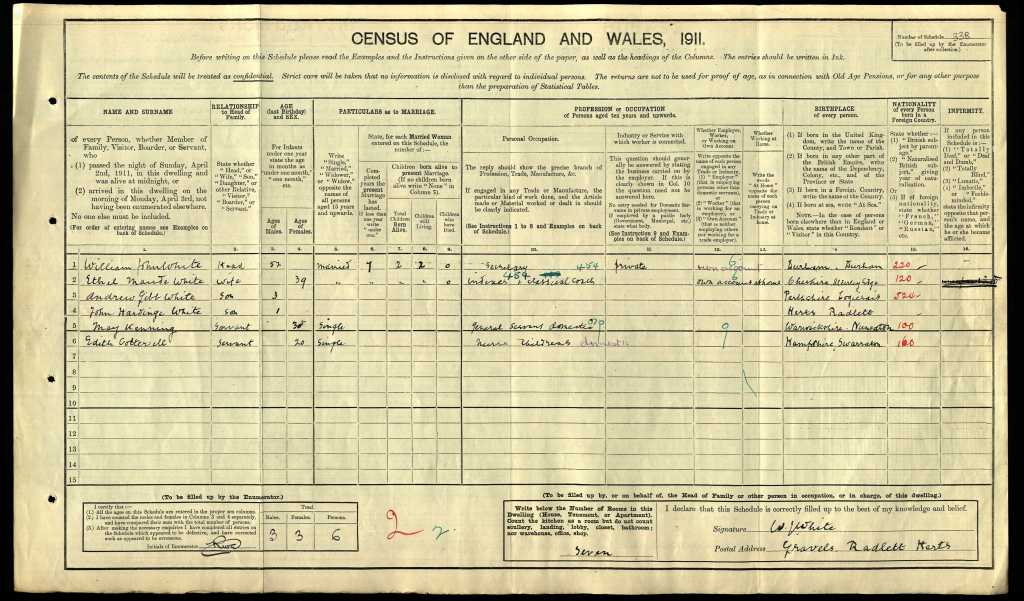 CENSUS OF ENGLAND AND WALES, 1911.
Number of Schedule 338
(To be filled up by the Enumerator after collection.)
Before writing on this Schedule please read the Examples and the Instructions given on the other side of the paper, as well as the headings of the Columns. The entries should be written in Ink.
The contents of the Schedule will be treated as confidential. Strict care will be taken that no information is disclosed with regard to individual persons. The returns are not to be used for proof of age, as in connection with Old Age Pensions, or for any other purpose
than the preparation of Statistical Tables.
NAME AND SURNAME
RELATIONSHIP to Head of Family.
AGE (last Birthday) and SEX.
PARTICULARS as to MARRIAGE.
PROFESSION or OCCUPATION of Persons aged ten years and upwards.
BIRTHPLACE of every person.
NATIONALITY of every Person born in a Foreign Country.
INFIRMITY.
of every Person, whether Member of Family, Visitor, Boarder, or Servant, who
(1) passed the night of Sunday, April 2nd, 1911, in this dwelling and was alive at midnight, or
(2) arrived in this dwelling on the morning of Monday, April 3rd, not having been enumerated elsewhere.
No one else must be included.
(For order of entering names see Examples on back of Schedule.)
State whether "Head," or "Wife," "Son," "Daughter," or other Relative, "Visitor," "Boarder," or "Servant."
For Infants under one year state the age in months as "under one month," "one month," etc.
Ages of Males.
Ages of Females.
Write "Single," "Married," "Widower," or "Widow," opposite the names of all persons aged 15 years and upwards.
State, for each Married Woman entered on this Schedule, the number of :—
Completed years the present Marriage has lasted. If less than one year write "under one."
Children born alive to present Marriage. (If no children born alive write "None" in Column 7).
Total Children Born Alive.
Children still Living.
Children who have Died.
Personal Occupation.
The reply should show the precise branch of Profession, Trade, Manufacture, &c.
If engaged in any Trade or Manufacture, the particular kind of work done, and the Article made or Material worked or dealt in should be clearly indicated.
(See Instructions 1 to 8 and Examples on back of Schedule.)
Industry or Service with which worker is connected.
This question should generally be answered by stating the business carried on by the employer. If this is clearly shown in Col. 10 the question need not be answered here.
No entry needed for Domestic Servants in private employment.
If employed by a public body (Government, Municipal, etc.) state what body.
(See Instruction 9 and Examples on back of Schedule.)
Whether Employer, Worker, or Working on Own Account.
Whether Working at Home.
(1) If born in the United Kingdom, write the name of the County, and Town or Parish.
(2) If born in any other part of the British Empire, write the name of the Dependency, Colony, etc., and of the Province or State.
(3) If born in a Foreign Country, write the name of the Country.
(4) If born at sea, write "At Sea."
NOTE.—In the case of persons born elsewhere than in England or Wales, state whether "Resident" or "Visitor" in this Country.
1. 2. 3. 4. 5. 6. 7. 8. 9. 10. 11. 12. 13. 14. 15. 16.
1 William John White Head 52 Married 7 2 2 0 Secretary 454 private own account Durham. Durham 220
2 Ethel Maude White Wife 39 " " " " 0 Indexer & classical coach own account at home Cheshire Alderley Edge 120
3 Andrew Gibb White Son 3 Perthshire 524
4 John Hardinge White Son 1 Herts Radlett
5 May Kenning Servant Single General Servant domestic 0 Warwickshire Nuneaton 100
6 Edith Cotterell Servant 20 Single Nurse Childrens domestic Hampshire Swarraton 160
7
8
9
10
11
12
13
14
15
(To be filled up by the Enumerator.)
I certify that :—
(1) All the ages on this Schedule are entered in the proper sex columns.
(2) I have counted the males and females in Columns 3 and 4 separately, and have compared their sum with the total number of persons.
(3) After making the necessary enquiries I have completed all entries on the Schedule which appeared to be defective, and have corrected such as appeared to be erroneous.
Initials of Enumerator
Total.
Males. Females. Persons.
3 3 6
2 2
(To be filled up by, or on behalf of, the Head of Family or other person in occupation, or in charge, of this dwelling.)
Write below the Number of Rooms in this Dwelling (House, Tenement, or Apartment). Count the kitchen as a room but do not count scullery, landing, lobby, closet, bathroom; nor warehouse, office, shop.
Seven
I declare that this Schedule is correctly filled up to the best of my knowledge and belief.
Signature W J White
Postal Address Gravels Radlett Herts